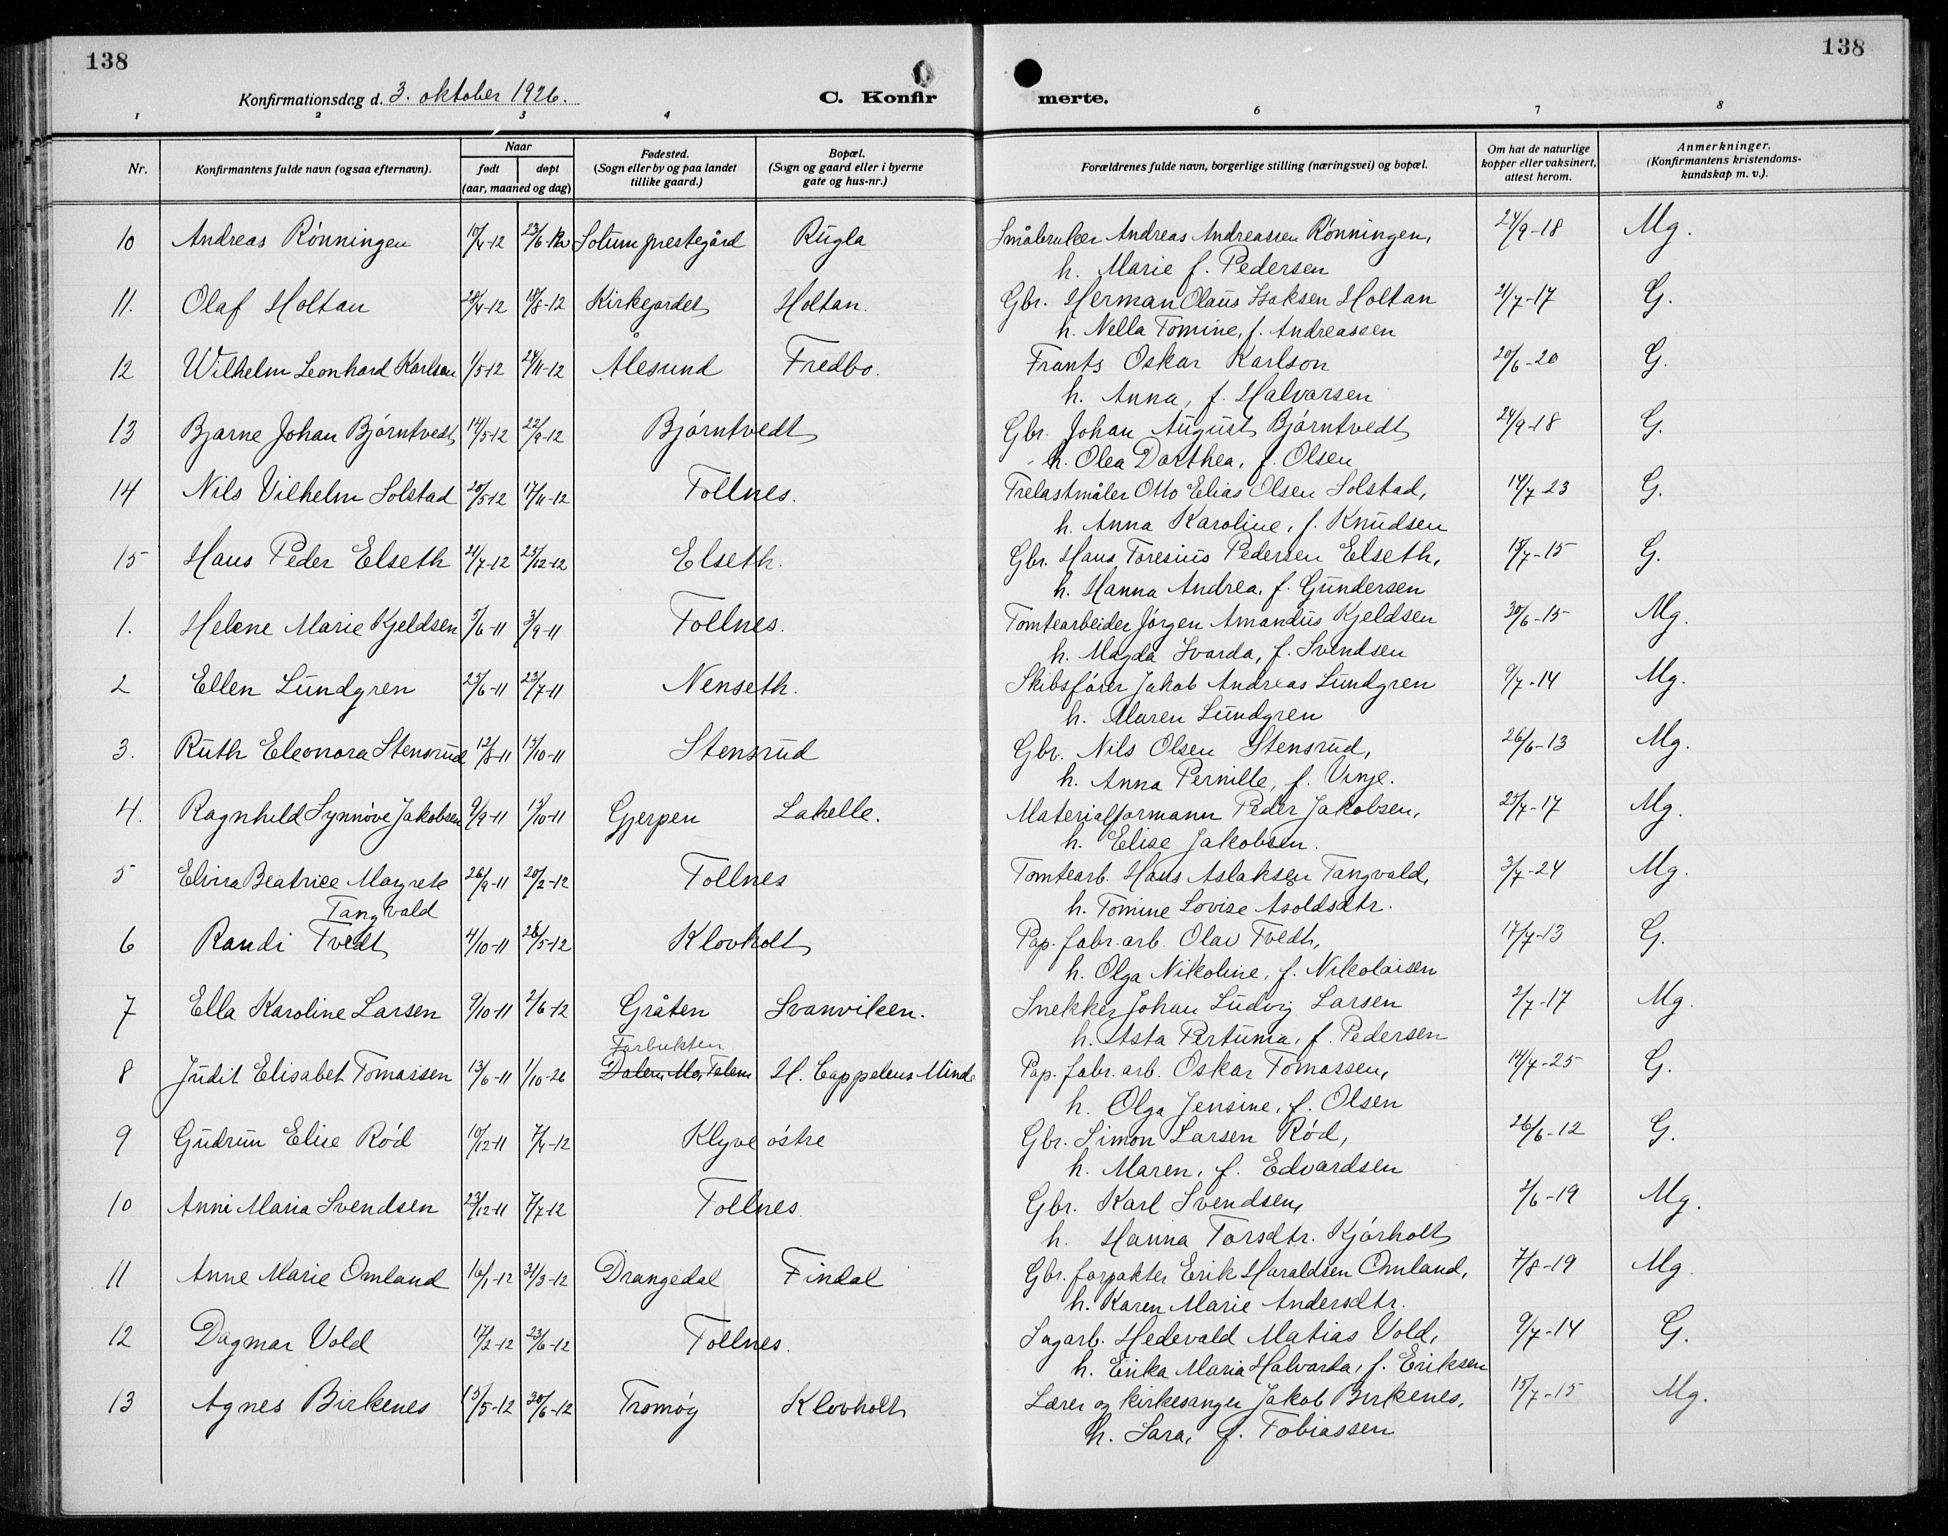 138
138
Konfirmationsdag d. 3. oktober 1926.
C. Konfir
merte.
1 2 3 4 6 7 8
Nr.
Konfirmantens fulde navn (ogsaa efternavn).
Naar
født døpt
(aar, maaned og dag)
Fødested.
(Sogn eller by og paa landet
tillike gaard.)
Bopæl.
(Sogn og gaard eller i byerne
gate og hus-nr.)
Forældrenes fulde navn, borgerlige stilling (næringsvei) og bopæl.
Om hat de naturlige
kopper eller vaksinert,
attest herom.
Anmerkninger.
(Konfirmantens kristendoms-
kundskap m. v.).
10 Andreas Rønningen 10/4-12 23/6-12 Solum prestegård Rugla Småbruker Andreas Andreassen Rønningen, 24/9-18 Mg.
h. Marie f. Pedersen
11. Olaf Holtan 28/4-12 18/8-12 Kirkegardet Holtan. Gbr. Herman Olaus Isaksen Holtan 21/7-17 G.
h. Nella Tomine, f. Andreassen
12 Wilhelm Leonhard Karlsen 1/5-12 24/11-12 Ålesund Fredbo. Frants Oskar Karlson 20/6-20 G.
h. Anna, f. Halvorsen
13 Bjarne Johan Bjørntvedt 14/5-12 22/9-12 Bjørntvedt Gbr. Johan August Bjørntvedt 24/9-18 G.
h. Olea Dorthea, f. Olsen
14 Nils Vilhelm Solstad 20/5-12 17/11-12 Tollnes. Trelastmåler Otto Elias Olsen Solstad, 14/7-23 G.
h. Anna Karoline, f. Knudsen
15 Hans Peder Elseth 21/7-12 25/12-12 Elseth. Gbr. Hans Toresius Pedersen Elseth, 15/7-15 G.
h. Hanna Andrea, f. Gundersen
1. Helene Marie Kjeldsen 5/6-11 3/9-11 Tollnes. Tomtearbeider Jørgen Amandus Kjeldsen 30/6-15 Mg.
h. Magda Svarda, f. Svendsen
2 Ellen Lundgren 25/6-11 23/7-11 Nenseth. Skibsfører Jakob Andreas Lundgren 9/7-14 Mg.
h. Maren Lundgren
3. Ruth Eleonora Stensrud 12/8-11 15/10-11 Stensrud Gbr. Nils Olsen Stensrud, 26/6-13 Mg.
h. Anna Pernille, f. Vinje.
4. Ragnhild Synnøve Jakobsen 9/9-11 15/10-11 Gjerpen Lakelle. Materialformann Peder Jakobsen, 25/7-17 Mg.
h. Elise Jakobsen.
5 Elvira Beatrice Margrete 26/9-11 20/2-12 Tollnes Tomtearb. Hans Aslaksen Tangvald, 3/7-24 Mg.
Tangvald h. Tomine Lovise Asoldsdtr.
6 Randi Tvedt 4/10-11 26/5-12 Klovholt Pap. fabr. arb. Olav Tvedt, 17/7-13 G.
h. Olga Nikoline, f. Nikolaisen
7 Ella Karoline Larsen 9/10-11 2/6-12 Gråten Svanviken. Snekker Johan Ludvig Larsen 2/7-17 Mg.
h. Asta Pertunia, f. Pedersen
Farbukten
8 Judit Elisabet Tomassen 13/6-11 1/10-26 Dalen, Mo, Telem. H. Cappelens Minde Pap. fabr. arb. Oskar Tomassen, 14/7-25 G.
h. Olga Jensine, f. Olsen
9 Gudrun Elise Rød 10/12-11 7/4-12 Klyve østre Gbr. Simon Larsen Rød, 26/6-12 G.
h. Maren, f. Edvardsen
10 Anni Maria Svendsen 23/12-11 7/7-12 Tollnes Gbr. Karl Svendsen, 2/6-19 Mg.
h. Hanna Torsdtr. Kjørholt
11 Anne Marie Omland 16/1-12 31/3-12 Drangedal Findal Gbr. forpakter Erik Haraldsen Omland, 7/8-19 Mg.
h. Karen Marie Andersdtr.
12 Dagmar Vold 17/2-12 23/6-12 Tollnes. Sagarb. Hedevald Matias Vold, 9/7-14 G.
h. Erika Maria Halvarda, f. Eriksen
13 Agnes Birkenes 15/5-12 30/6-12 Tromøy Klovholt Lærer og kirkesanger Jakob Birkenes, 15/7-15 Mg.
h. Sara, f. Tobiassen